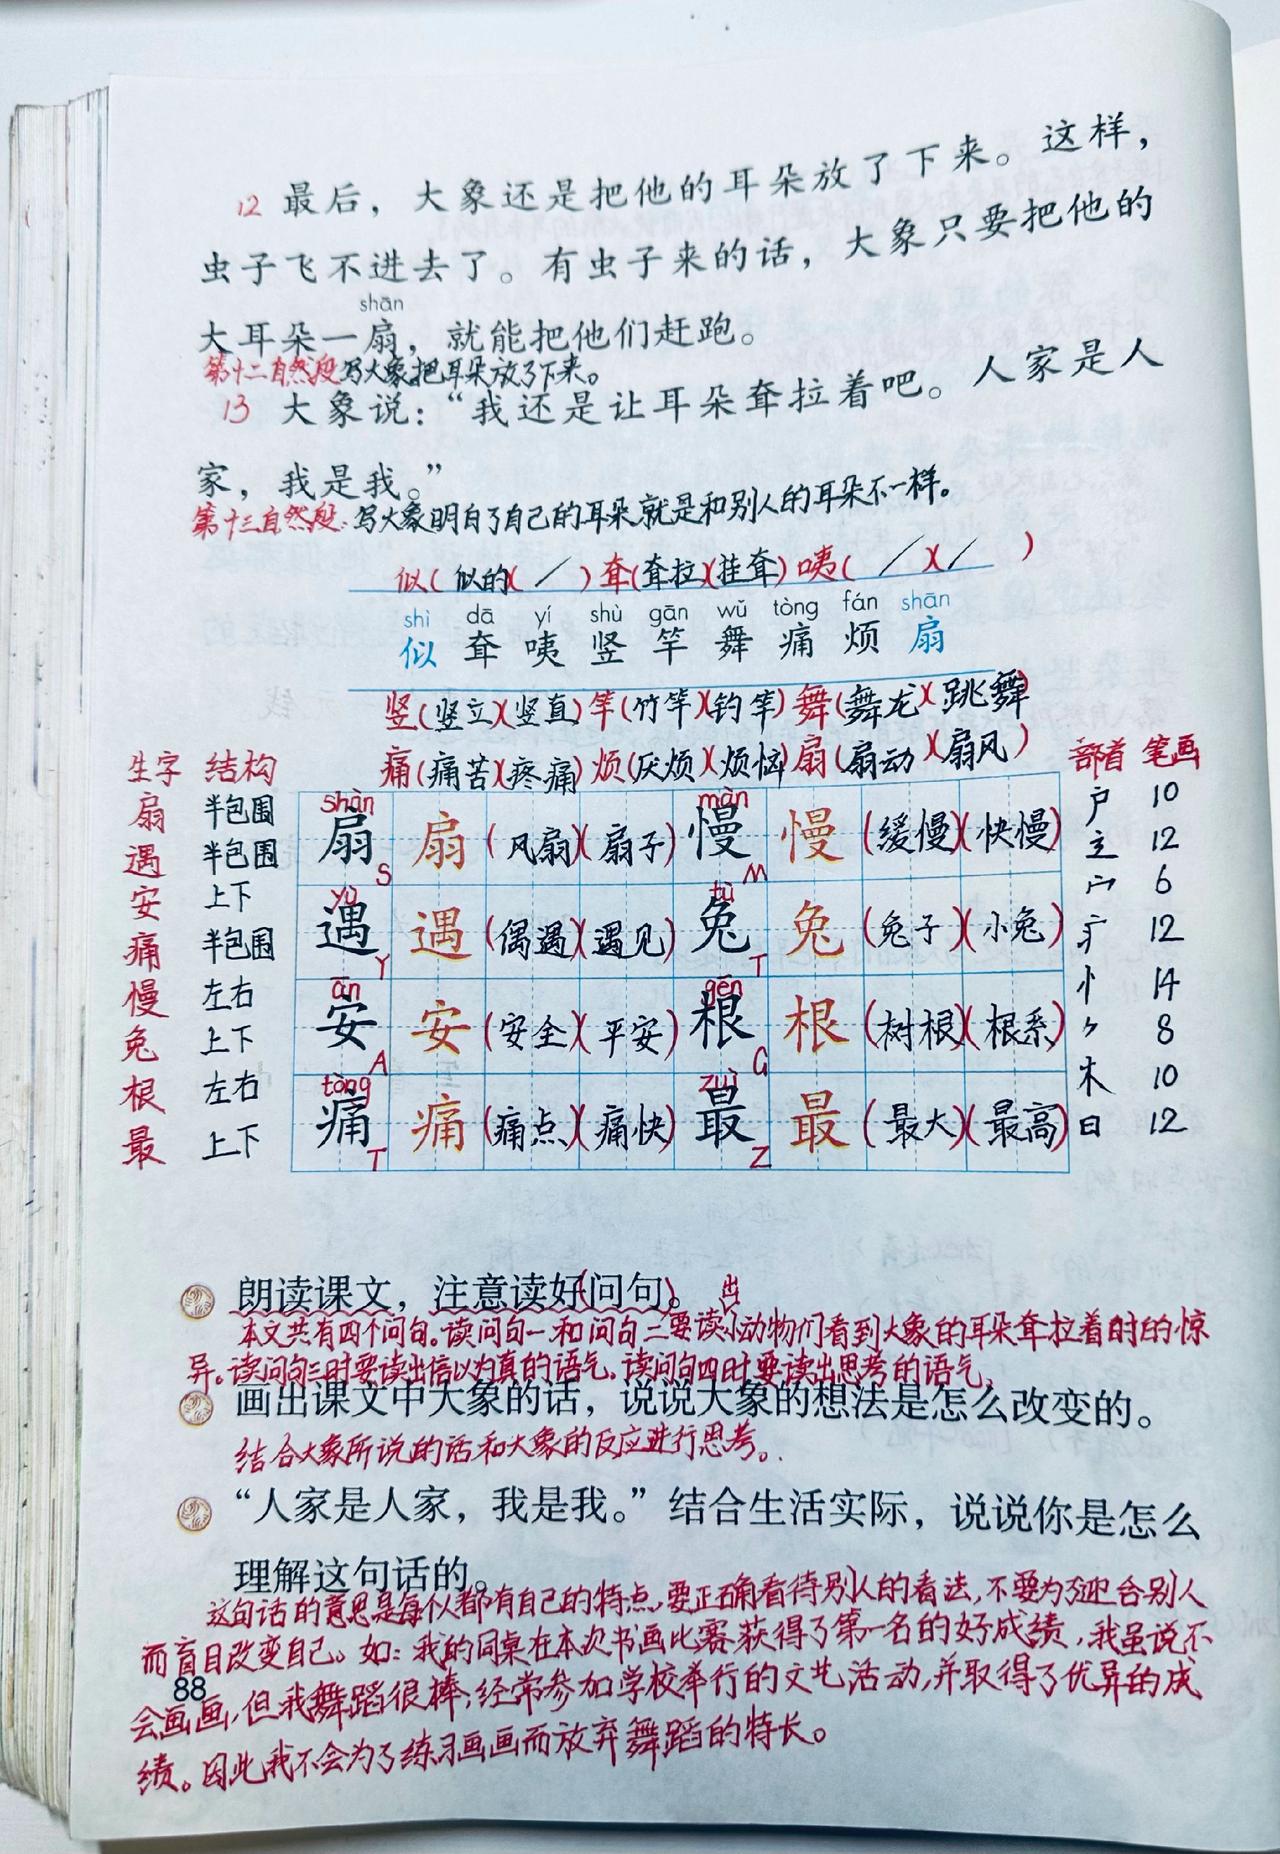 12 最后，大象还是把他的耳朵放了下来。这样，
虫子飞不进去了。有虫子来的话，大象只要把他的
shān
大耳朵一扇，就能把他们赶跑。
第十二自然段写大象把耳朵放了下来。
13 大象说：“我还是让耳朵耷拉着吧。人家是人
家，我是我。”
第十三自然段：写大象明白了自己的耳朵就是和别人的耳朵不一样。
似（似的）（／）耷（耷拉）（挂耷）咦（／）（／）
shì dā yí shù gān wǔ tòng fán shān
似 耷 咦 竖 竿 舞 痛 烦 扇
竖（竖立）（竖直）竿（竹竿）（钓竿）舞（舞龙）（跳舞）
痛（痛苦）（疼痛）烦（厌烦）（烦恼）扇（扇动）（扇风）
生字 结构 部首 笔画
扇 半包围 户 10
遇 半包围 辶 12
安 上下 宀 6
痛 半包围 疒 12
慢 左右 忄 14
兔 上下 ⺈ 8
根 左右 木 10
最 上下 日 12
shàn màn
扇 扇（风扇）（扇子）慢 慢（缓慢）（快慢）
S M
yù tù
遇 遇（偶遇）（遇见）兔 兔（兔子）（小兔）
Y T
ān gēn
安 安（安全）（平安）根 根（树根）（根系）
A G
tòng zuì
痛 痛（痛点）（痛快）最 最（最大）（最高）
T Z
朗读课文，注意读好（问句）。
本文共有四个问句。读问句一和问句二要读出小动物们看到大象的耳朵耷拉着时的惊
异。读问句三时要读出信以为真的语气。读问句四时要读出思考的语气。
画出课文中大象的话，说说大象的想法是怎么改变的。
结合大象所说的话和大象的反应进行思考。
“人家是人家，我是我。”结合生活实际，说说你是怎么
理解这句话的。
这句话的意思是每个人都有自己的特点，要正确看待别人的看法，不要为了迎合别人
而盲目改变自己。如：我的同桌在本次书画比赛获得了第一名的好成绩，我虽说不
会画画，但我舞蹈很棒；经常参加学校举行的文艺活动，并取得了优异的成
绩。因此我不会为了练习画画而放弃舞蹈的特长。
88